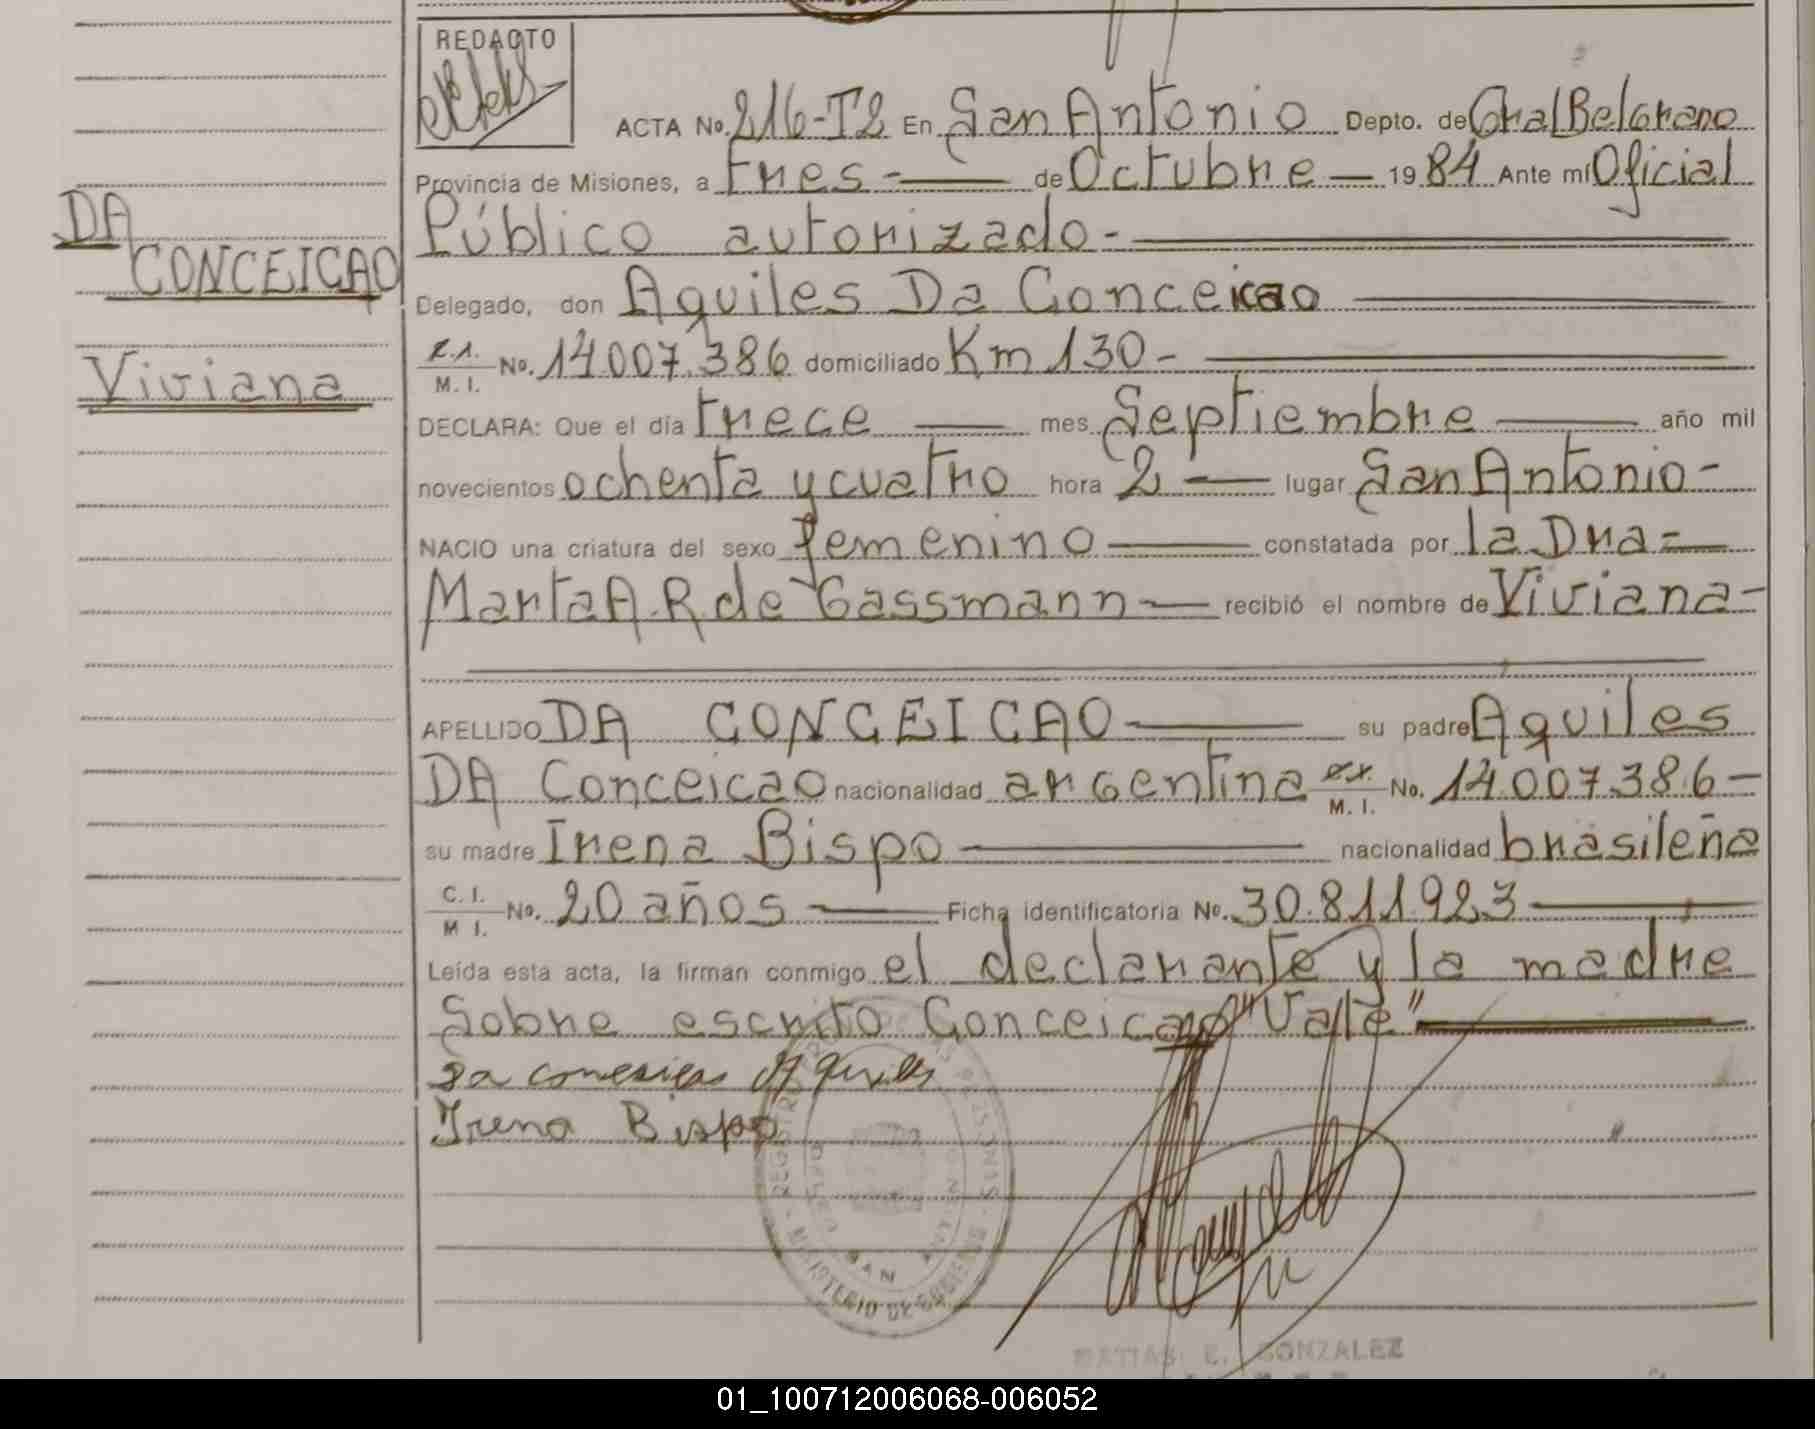 REDACTO
ACTA No. 216-T2 En San Antonio Depto. de Gral Belgrano
Provincia de Misiones, a tres - de Octubre - 19 84 Ante mí Oficial
Público autorizado -
DA
CONCEICAO
Delegado, don Aquiles Da Conceicao
Viviana
M. I. No. 14.007.386 domiciliado Km 130 -
DECLARA: Que el día trece mes Septiembre año mil
novecientos ochenta y cuatro hora 2 - lugar San Antonio -
NACIO una criatura del sexo femenino constatada por la Dra =
Marta A. R. de Gassmann - recibió el nombre de Viviana -
APELLIDO DA CONCEICAO su padre Aquiles
DA Conceicao nacionalidad argentina M. I. No. 14.007.386 -
su madre Irena Bispo nacionalidad brasileña
C. I. M I. No. 20 años Ficha identificatoria No. 30.811.923
Leída esta acta, la firman conmigo el declarante y la madre
Sobre escrito Conceicao "Vale"
Irena Bispo
SAN
MINISTERIO DE GOBIERNO
MATIAS E. GONZALEZ
01_100712006068-006052